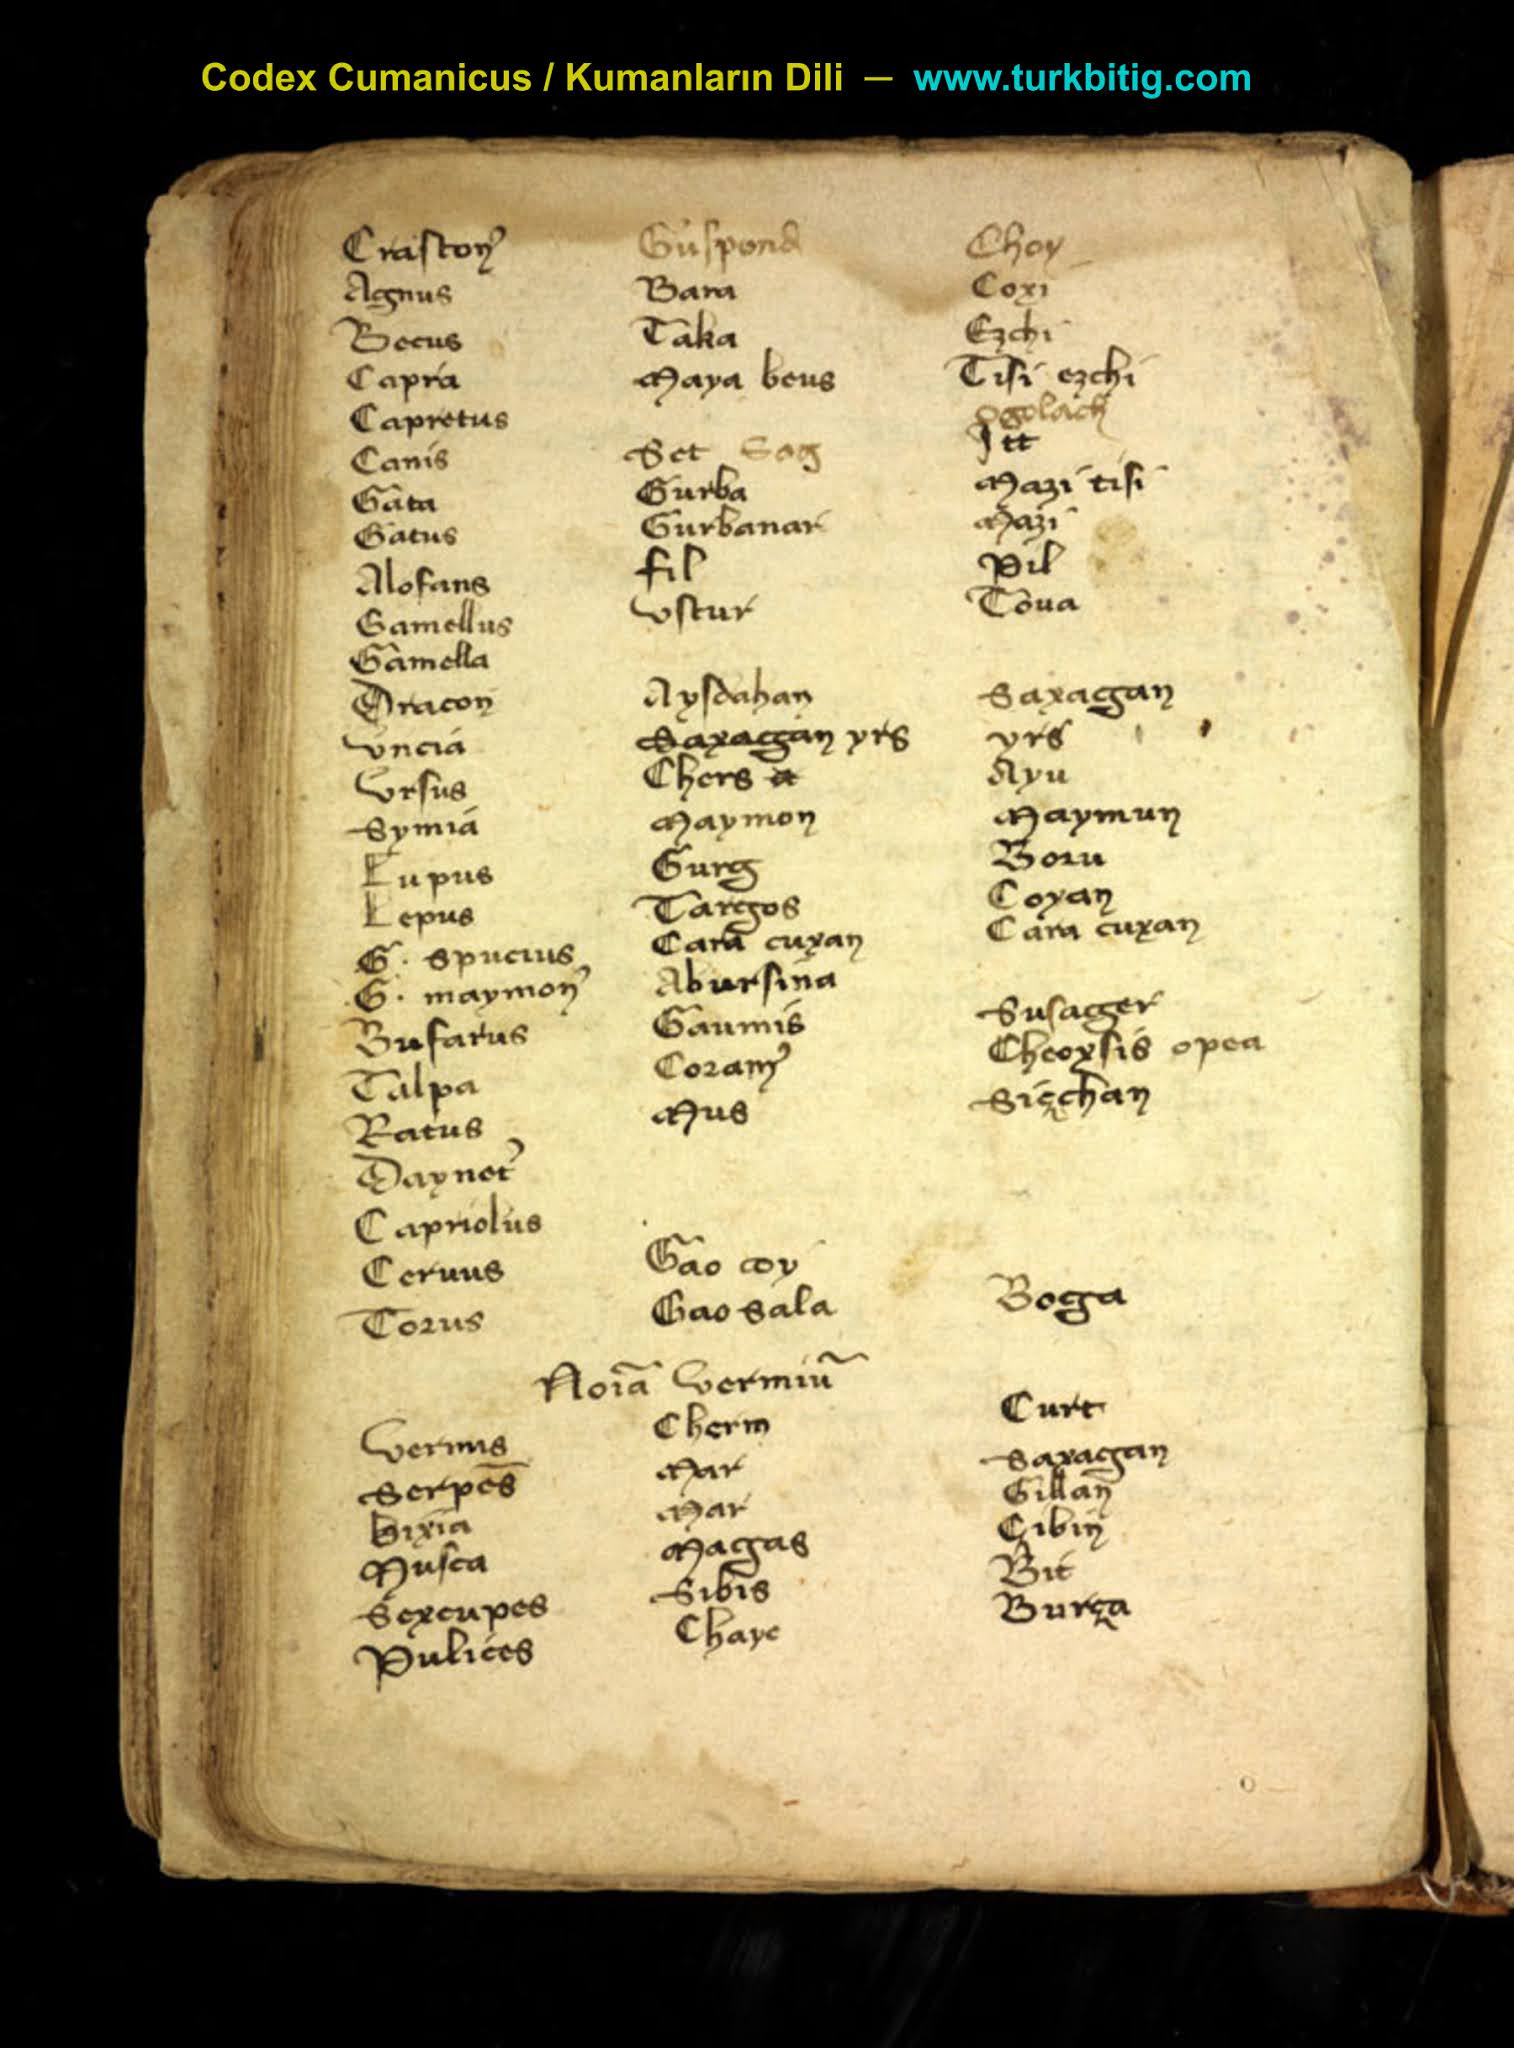 Codex Cumanicus / Kumanların Dili — www.turkbitig.com
Craston̉ Guspond Choy
Agnus Bara Coxi
Becus Taka Ezchi
Capra Maya beus Tisi ezchi
Capretus ogolach
Canis Set Sog Itt
Gata Gurba Mazi tisi
Gatus Gurbanar Mazi
Alofans fil Pil
Gamellus vstur Toua
Gamella
Dracon Aysdahan Saxagan
vncia Saxagan yrs yrs
vrsus Chers a Ayu
Symia Maymon Maymun
Lupus Gurg Boru
Lepus Targos Coyan
G. spucius Cara cuxan Cara cuxan
G. maymon̉ Abursina
Bufarus Gaumis Susager
Talpa Coram̉ Cheoxsis opea
Ratus Mus Siçchan
Daynet̉
Capriolus
Ceruus Gao coy
Torus Gao sala Boga
Noīa vermiū
vermis Cherm Curt
Serpēs Mar Saxagan
bixia Mar Gillan
Musca Magas Çibin
Sexcupes Sibis Bit
Pulices Chayc Burça